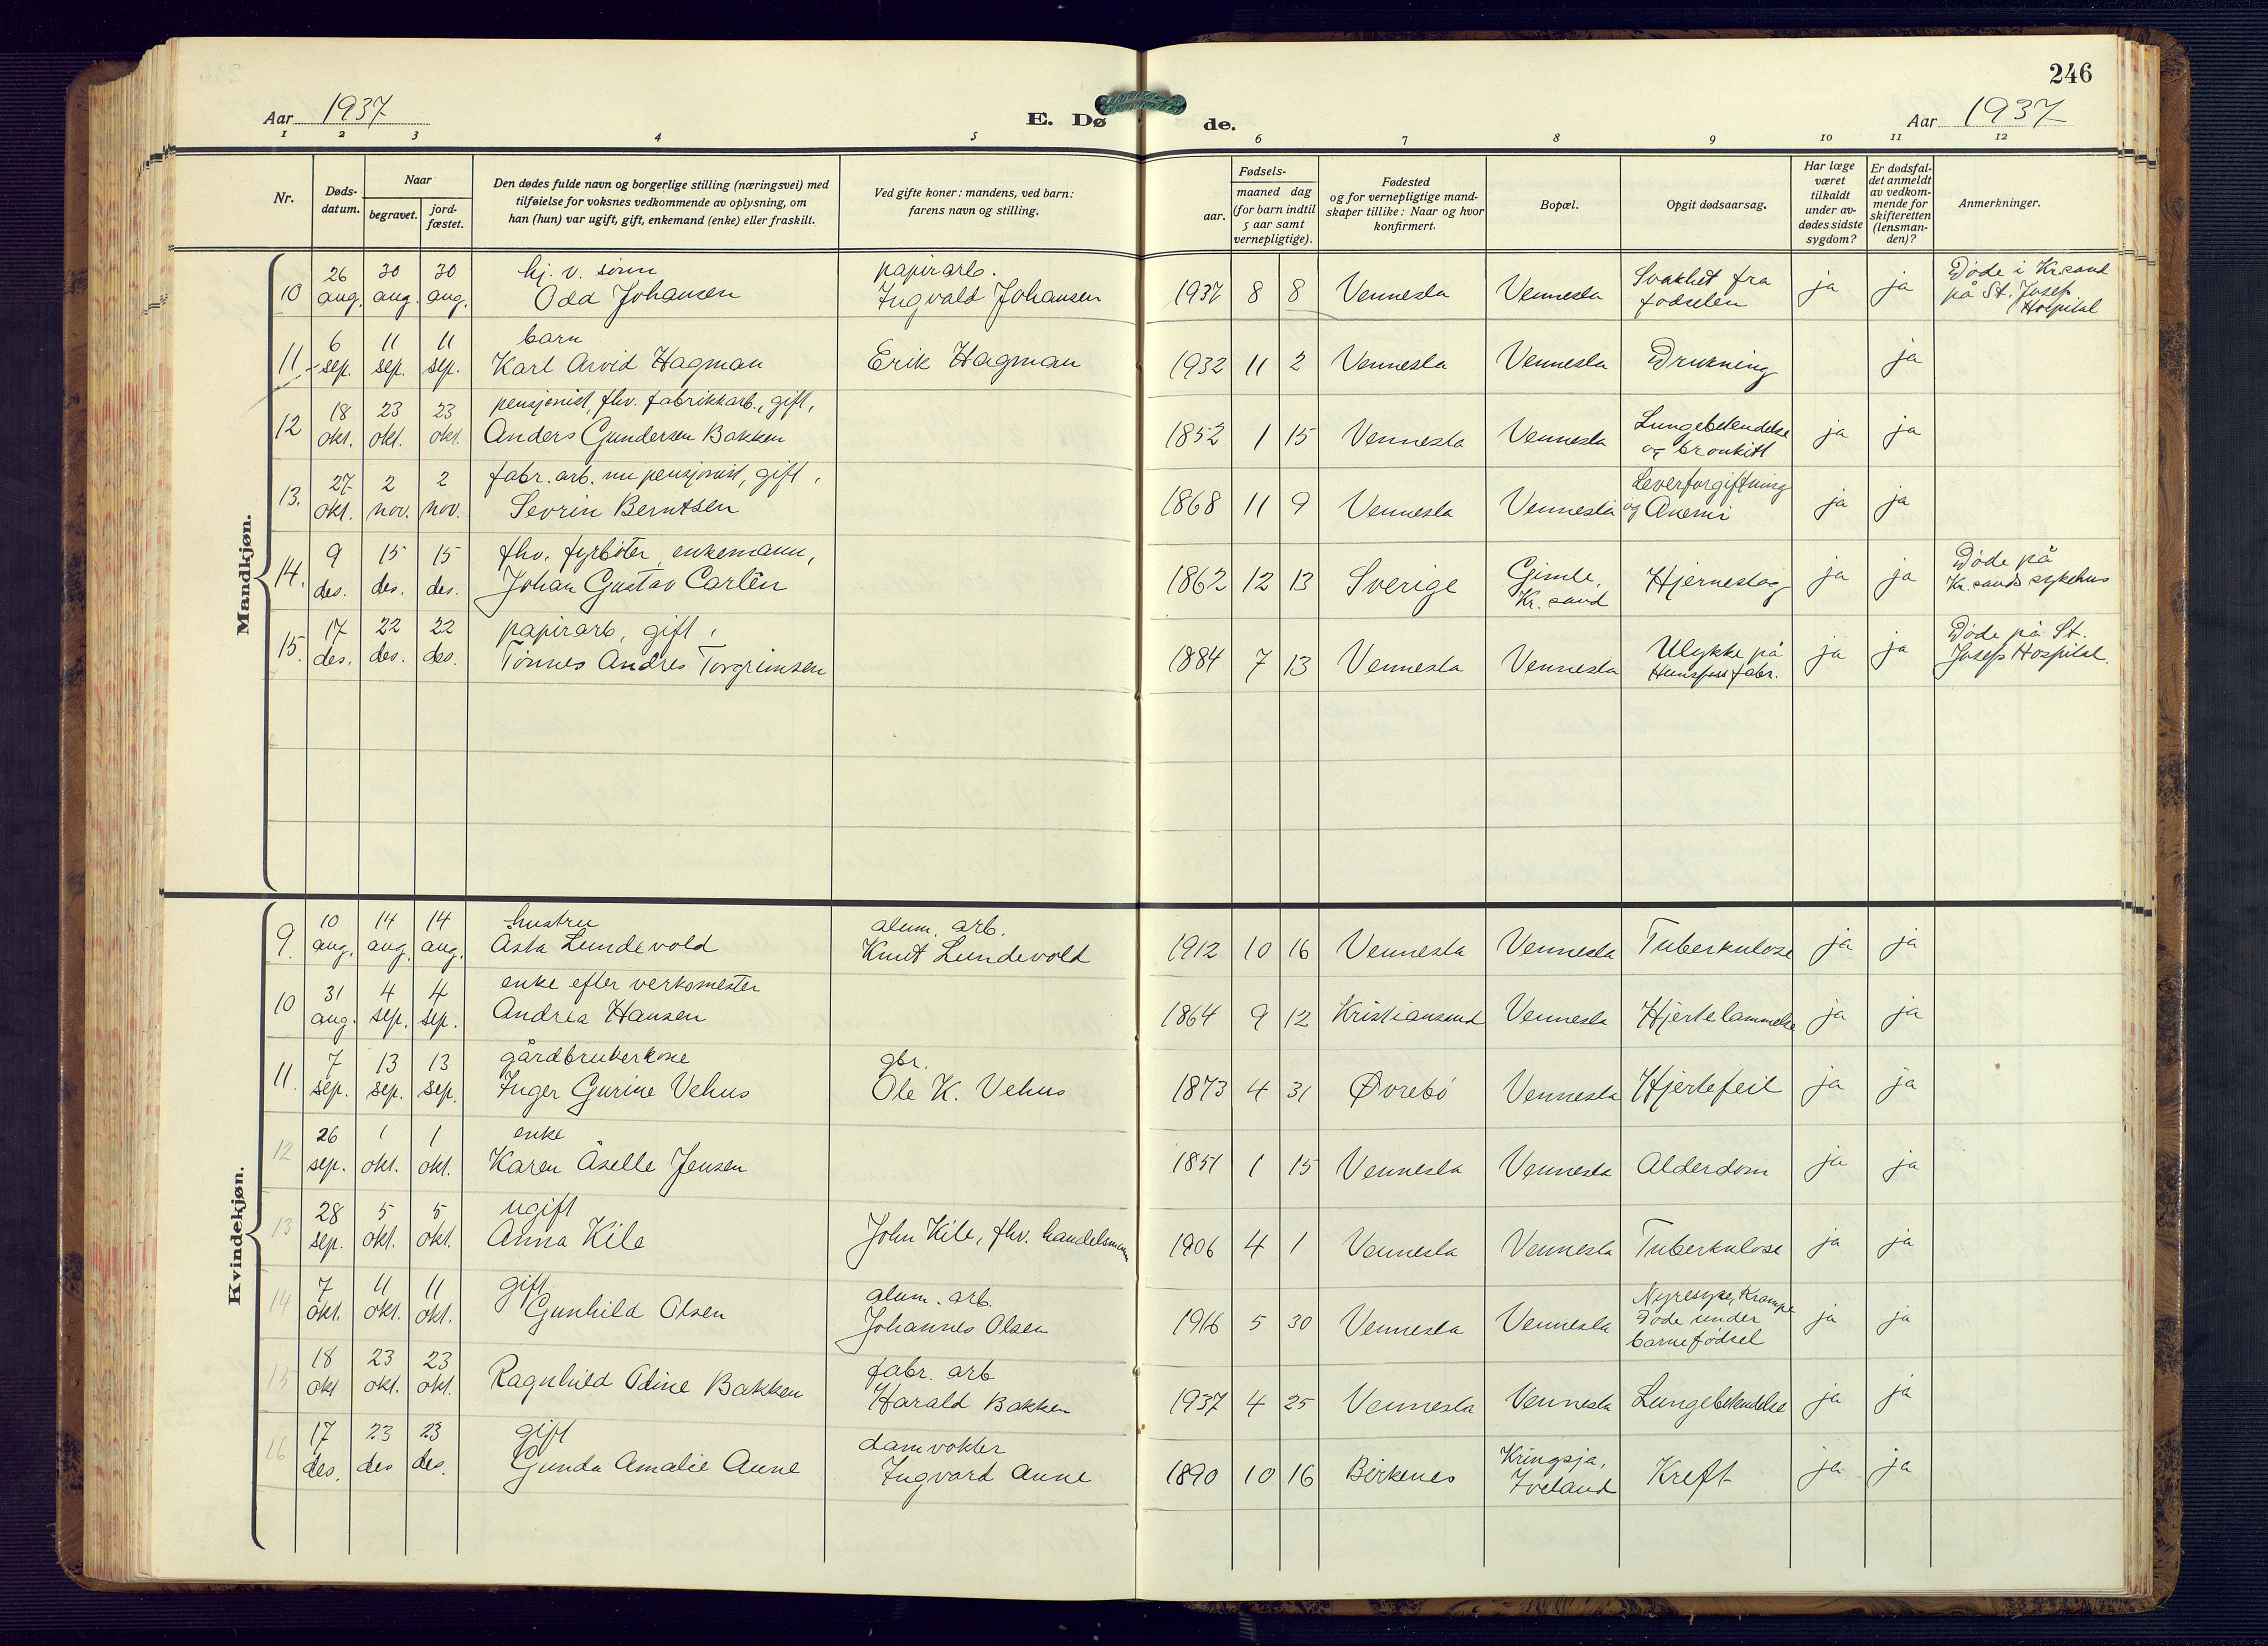 246
Aar 1937
E. Dø de.
Aar 1937
1 2 3 4 5 6 7 8 9 10 11 12
Nr.
Døds-
datum.
Naar
begravet.
jord-
fæstet.
Den dødes fulde navn og borgerlige stilling (næringsvei) med
tilføielse for voksnes vedkommende av oplysning, om
han (hun) var ugift, gift, enkemand (enke) eller fraskilt.
Ved gifte koner: mandens, ved barn:
farens navn og stilling.
Fødsels-
aar.
maaned dag
(for barn indtil
5 aar samt
vernepligtige).
Fødested
og for vernepligtige mand-
skaper tillike: Naar og hvor
konfirmert.
Bopæl.
Opgit dødsaarsag.
Har læge
været
tilkaldt
under av-
dødes sidste
sygdom?
Er dødsfal-
det anmeldt
av vedkom-
mende for
skifteretten
(lensman-
den)?
Anmerkninger.
Mandkjøn.
26 30 30 hj. v. sönn papirarb. Svakhet fra Döde i Kr.sand
10 aug. aug. aug. Odd Johansen Ingvald Johansen 1937 8 8 Vennesla Vennesla fødselen ja ja på St. Josef
Hospital
6 11 11 barn
11 sep. sep. sep. Karl Arvid Hagman Erik Hagman 1932 11 2 Vennesla Vennesla Drukning ja
18 23 23 pensjonist, fhv. fabrikkarb., gift, Lungebetendelse
12 okt. okt. okt. Anders Gundersen Bakken 1852 1 15 Vennesla Vennesla og bronkitt ja ja
27 2 2 fabr. arb. nu pensjonist, gift, Leverforgiftning
13. okt. nov. nov. Sevrin Berntsen 1868 11 9 Vennesla Vennesla og Anemi ja ja
9 15 15 fhv. fyrböter, enkemann, Gimle, Döde på
14. des. des. des. Johan Gustav Carlén 1862 12 13 Sverige Kr. sand Hjerneslag ja ja Kr.sands sykehus
17 22 22 papirarb, gift, Ulykke på Döde på St.
15. des. des. des. Tönnes Andres Torgrimsen 1884 7 13 Vennesla Vennesla Hunsfoss fabr. ja ja Josefs Hospital.
Kvindekjøn.
10 14 14 hustru alum. arb.
9. aug. aug. aug. Åsta Lundevold Knut Lundevold 1912 10 16 Vennesla Vennesla Tuberkulose ja ja
31 4 4 enke efter verksmester
10 aug. sep. sep. Andrea Hansen 1864 9 12 Kristiansand Vennesla Hjertelammelse ja ja
7 13 13 gårdbrukerkone gbr.
11. sep. sep. sep. Inger Gurine Vehus Ole K. Vehus 1873 4 31 Øvrebö Vennesla Hjertefeil ja ja
26 1 1 enke
12 sep. okt. okt. Karen Åselle Jensen 1851 1 15 Vennesla Vennesla Alderdom ja ja
28 5 5 ugift
13 sep. okt. okt. Anna Kile John Kile, fhv. handelsmann 1906 4 1 Vennesla Vennesla Tuberkulose ja ja
7 11 11 gift alum. arb. Nyresyke, Krampe
14 okt. okt. okt. Gunhild Olsen Johannes Olsen 1916 5 30 Vennesla Vennesla Döde under ja ja
barnefödsel
18 23 23 fabr. arb
15 okt okt. okt. Ragnhild Odine Bakken Harald Bakken 1937 4 25 Vennesla Vennesla Lungebetendelse ja ja
17 23 23 gift damvokter Kringsja,
16 des. des des. Gunda Amalie Aune Ingvard Aune 1890 10 16 Birkenes Iveland Kreft ja ja